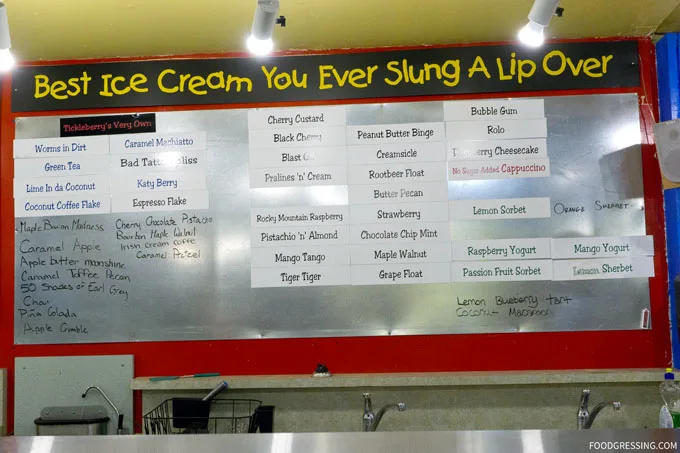 Best Ice Cream You Ever Slung A Lip Over
Tickleberry's Very Own
Worms in Dirt
Green Tea
Lime In da Coconut
Coconut Coffee Flake
Caramel Machiatto
Bad Bliss
Katy Berry
Espresso Flake
Maple Bacon Madness
Caramel Apple
Apple butter moonshine
Caramel Toffee Pecan
50 Shades of Earl Grey
Chai
Piña Colada
Apple Crumble
Cherry Chocolate Pistachio
Bourbon Maple Walnut
Irish Cream coffe
Caramel Pretzel
Cherry Custard
Black Cherry
Blast
Pralines 'n' Cream
Rocky Mountain Raspberry
Pistachio 'n' Almond
Mango Tango
Tiger Tiger
Peanut Butter Binge
Creamsicle
Rootbeer Float
Butter Pecan
Strawberry
Chocolate Chip Mint
Maple Walnut
Grape Float
Bubble Gum
Rolo
Cheesecake
No Sugar Added Cappuccino
Lemon Sorbet
Orange Sherbet
Raspberry Yogurt
Passion Fruit Sorbet
Mango Yogurt
Sherbet
Lemon Blueberry tart
Coconut Macaroon
FOODGRESSING.COM